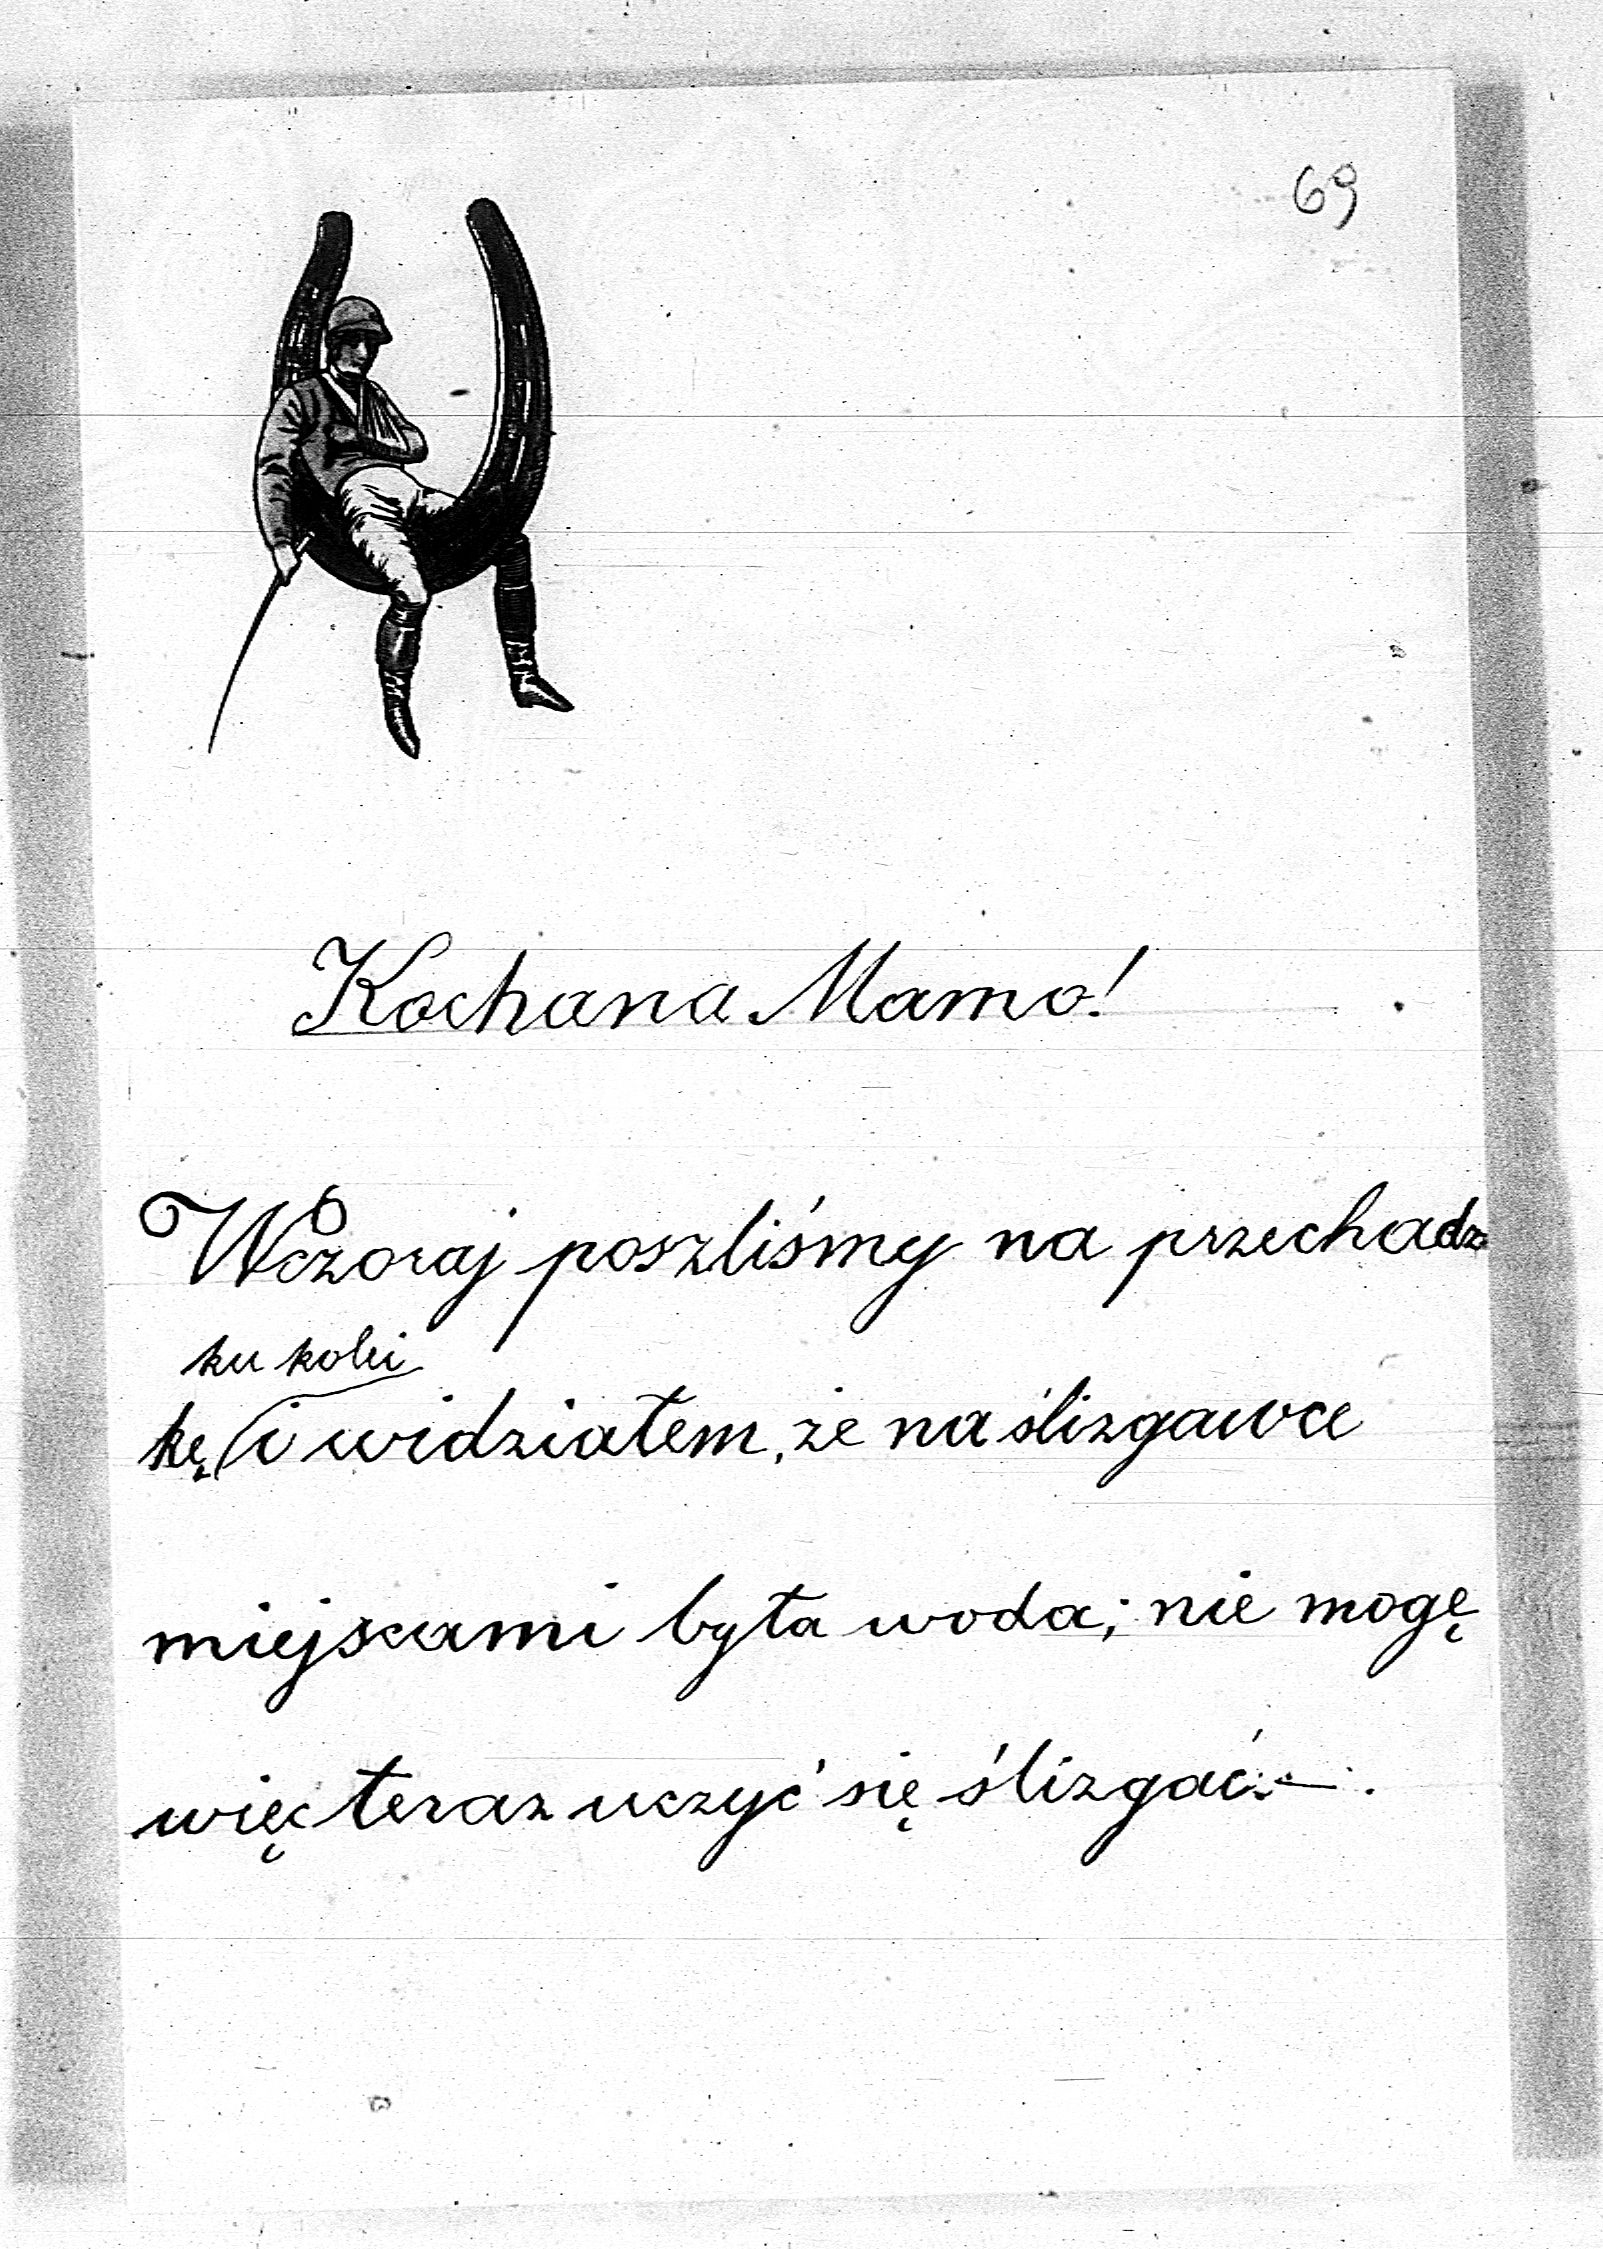 69
Kochana Mamo!
Wczoraj poszliśmy na przechadz
ku kolei
kę i widziałem, że na ślizgawce
miejscami była woda; nie mogę
więc teraz uczyć się ślizgać.